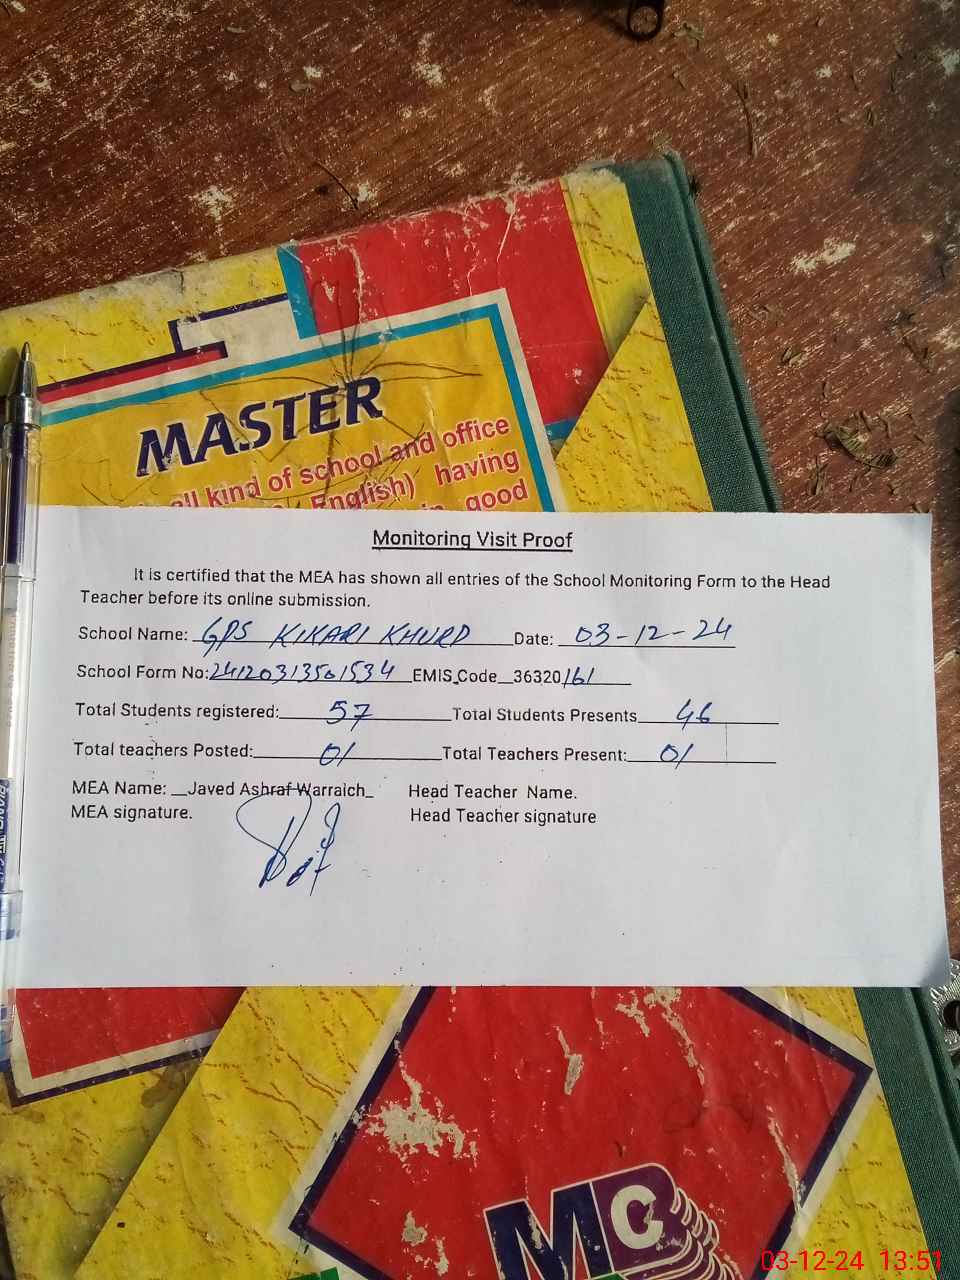 MASTER
all kind of school and office
English) having
good
Monitoring Visit Proof
It is certified that the MEA has shown all entries of the School Monitoring Form to the Head
Teacher before its online submission.
School Name: GPS KIKARI KHURD Date: 03-12-24
School Form No: 24120313501534 EMIS Code 36320161
Total Students registered: 57 Total Students Presents 46
Total teachers Posted: 01 Total Teachers Present: 01
MEA Name: Javed Ashraf Warraich Head Teacher Name.
MEA signature. Head Teacher signature
MC
03-12-24 13:51